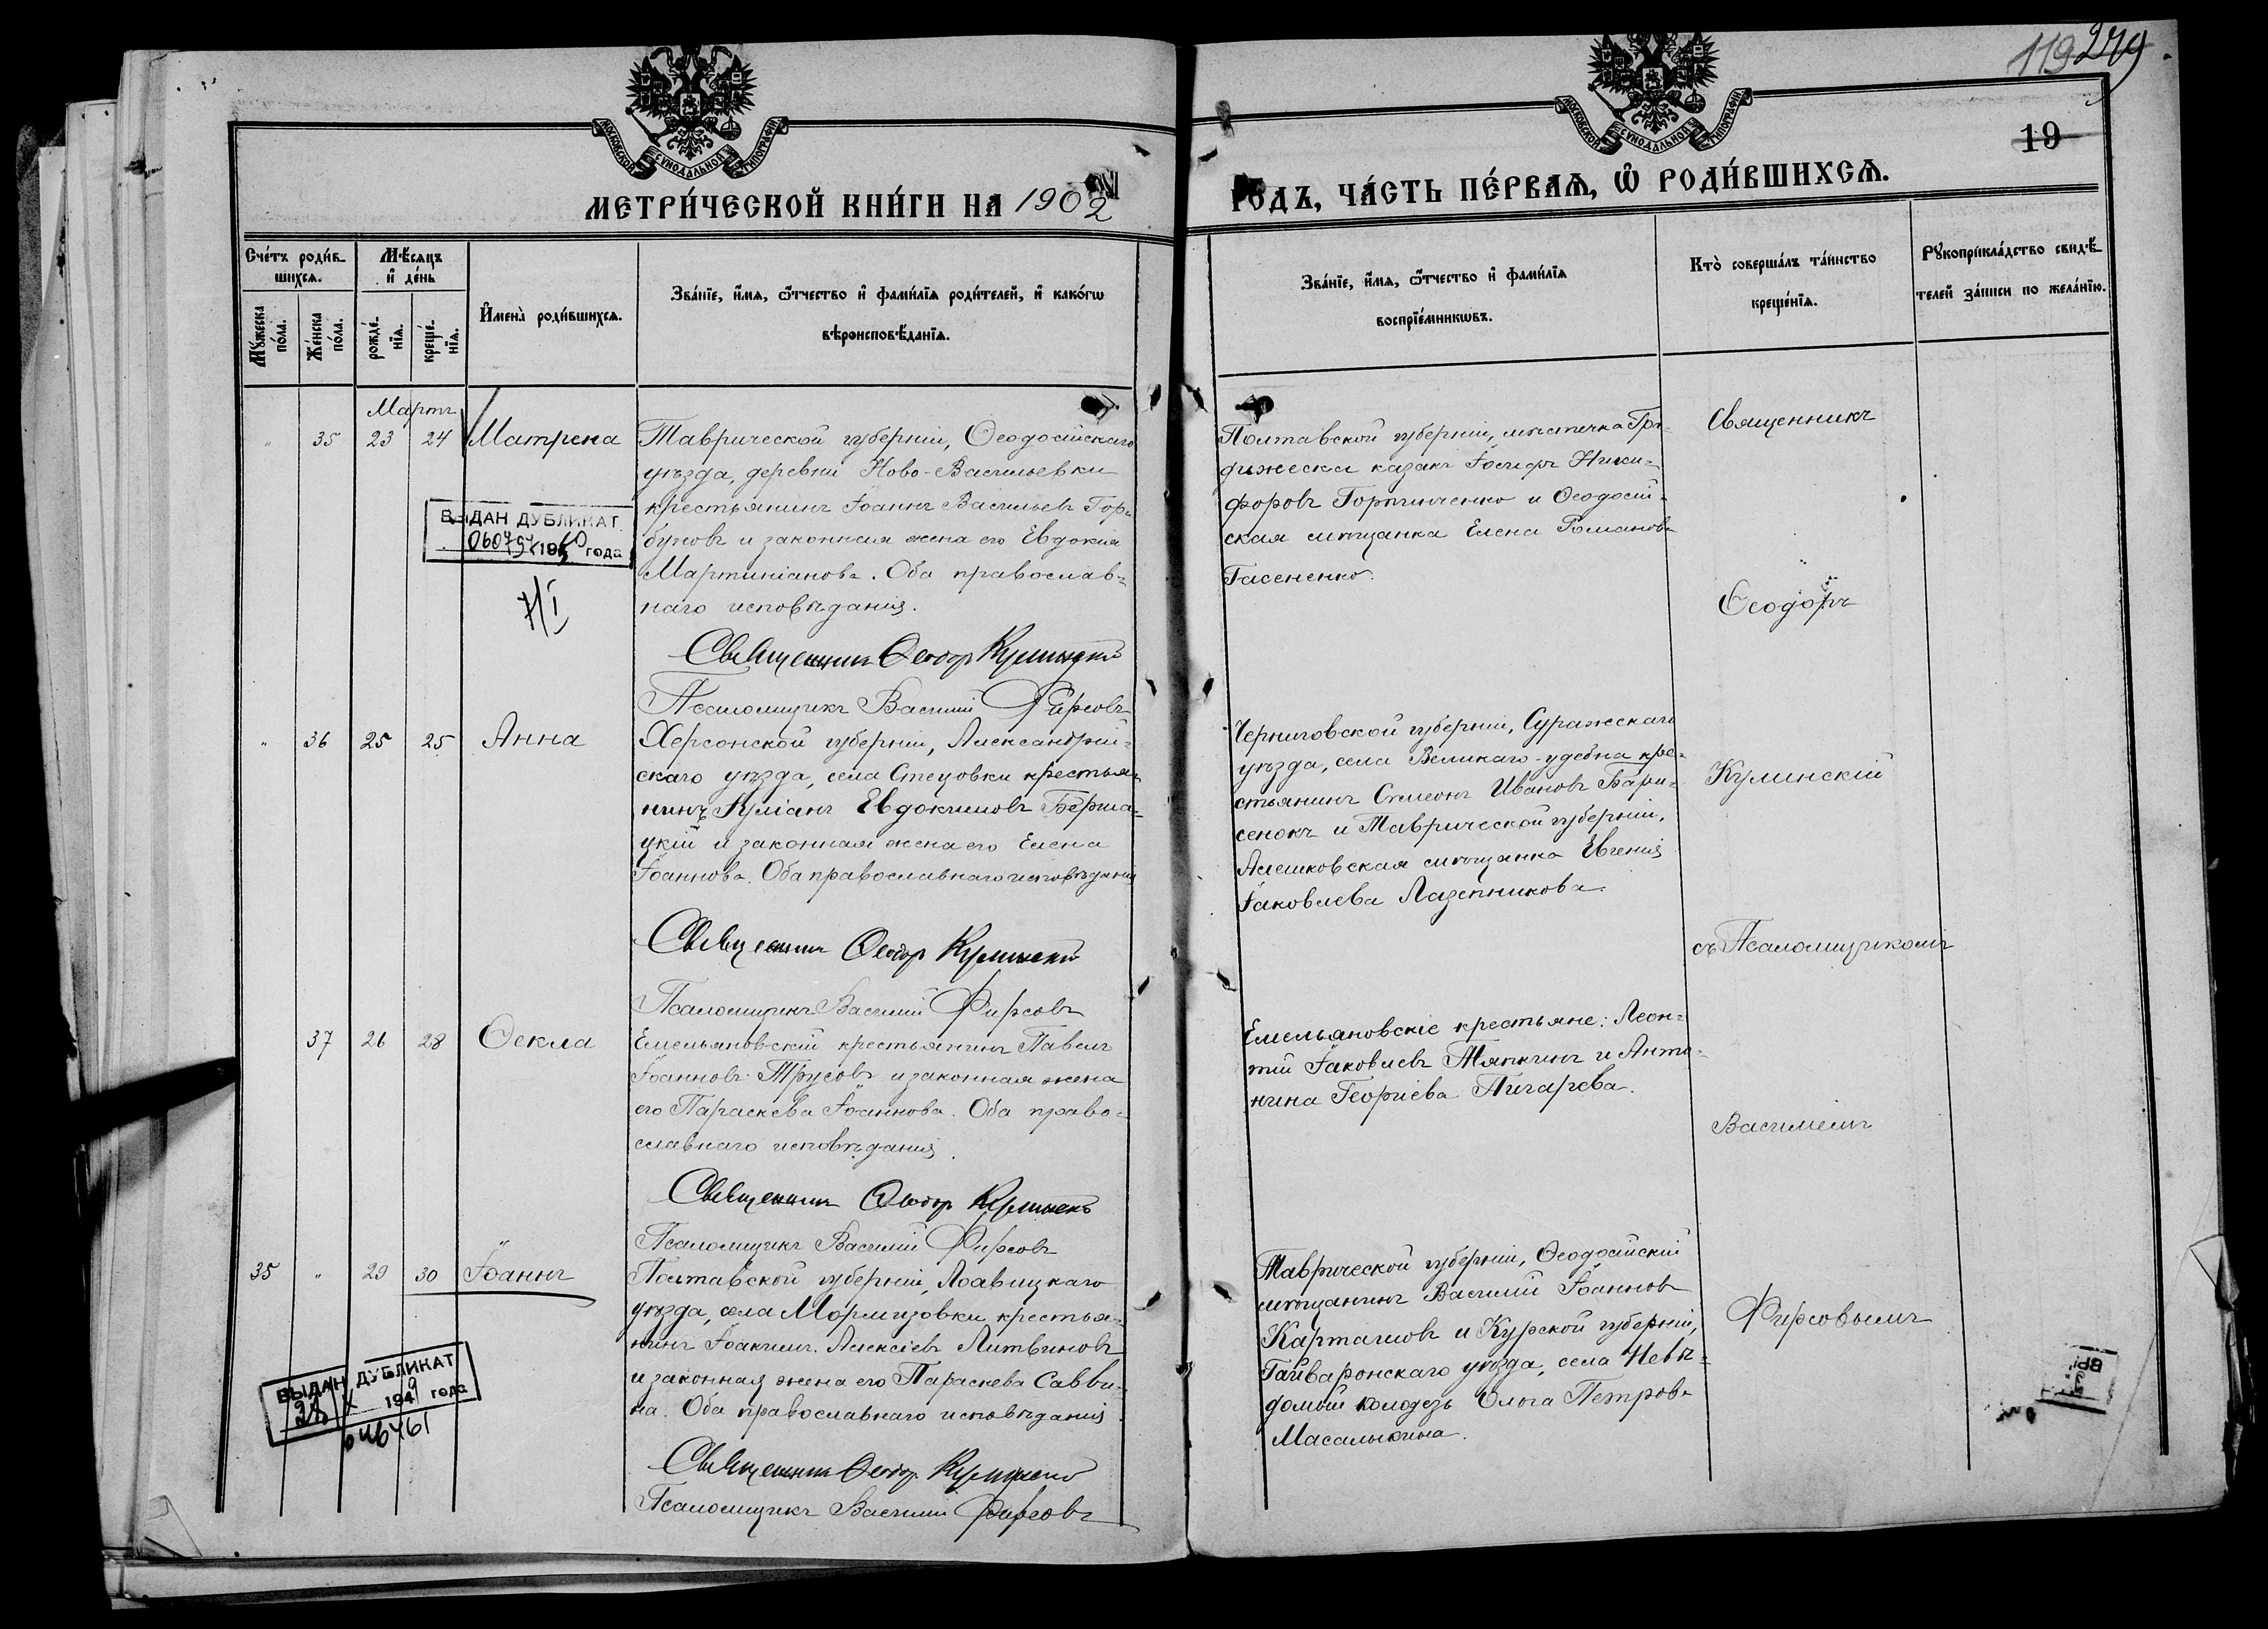 119 249
19
МОСКОВСКОЙ СѴНОДАЛЬНОЙ ТИПОГРАФІИ
МОСКОВСКОЙ СѴНОДАЛЬНОЙ ТИПОГРАФІИ
МЕТРИ́ЧЕСКОЙ КНИ́ГИ НА 1902
ГОДЪ, ЧА́СТЬ ПЕ́РВАѦ, Ѽ РОДИ́ВШИХСѦ.
Сче́тъ роди́в-
шихсѧ.
Мꙋ́жеска
по́ла.
Же́нска
по́ла.
Мѣ́сѧцъ
и҆ де́нь
рожде́-
нїѧ.
креще́-
нїѧ.
И҆мена̀ роди́вшихсѧ.
Зва́нїе, и҆́мѧ, ѻ҆́тчество и҆ фами́лїѧ роди́телей, и҆ како́гѡ
вѣроисповѣ́данїѧ.
Зва́нїе, и҆́мѧ, ѻ҆́тчество и҆ фами́лїѧ
воспрїе́мникѡвъ.
Кто̀ соверша́лъ та́инство
креще́нїѧ.
Рꙋкоприкла́дство свидѣ́-
телей за́писи по жела́нїю.
Мартъ
" 35 23 24 Матрена
Таврической губерніи, Ѳеодосійскаго
уѣзда, деревни Ново-Васильевки
крестьянинъ Іоаннъ Васильевъ Гор-
буновъ и законная жена его Евдокія
Мартиніанова. Оба православ-
наго исповѣданія.
Священникъ Ѳеодоръ Кулинскій
Псаломщикъ Василій Фирсовъ
ВЫДАН ДУБЛИКАТ
года
Полтавской губерніи, мѣстечка Гра-
дижска казакъ Іосифъ Ники-
форовъ Горпинченко и Ѳеодосій-
ская мѣщанка Елена Романова
Гасененко.
" 36 25 25 Анна
Херсонской губерніи, Александрій-
скаго уѣзда, села Стецовки крестья-
нинъ Куліанъ Евдокимовъ Берша-
цкій и законная жена его Елена
Іоаннова. Оба православнаго исповѣданія
Священникъ Ѳеодоръ Кулинскій
Псаломщикъ Василій Фирсовъ
Черниговской губерніи, Суражскаго
уѣзда, села Великаго-удебна кре-
стьянинъ Симеонъ Ивановъ Бари-
сенокъ и Таврической губерніи,
Алешковская мѣщанка Евгенія
Іаковлева Лазепникова.
37 26 28 Ѳекла
Емельяновскій крестьянинъ Павелъ
Іоанновъ Трусовъ и законная жена
его Параскева Іоаннова. Оба право-
славнаго исповѣданія.
Священникъ Ѳеодоръ Кулинскій
Псаломщикъ Василій Фирсовъ
Емельяновскіе крестьяне: Леон-
тій Іаковлевъ Тяпкинъ и Анто-
нина Георгіева Пигарева.
35 " 29 30 Іоаннъ
Полтавской губерніи, Лохвицкаго
уѣзда, села Мормизовки, крестья-
нинъ Іоакимъ Алексіевъ Литвиновъ
и законная жена его Параскева Савви-
на. Оба православнаго исповѣданія
Священникъ Ѳеодоръ Кулинскій
Псаломщикъ Василій Фирсовъ
ВЫДАН ДУБЛИКАТ
194 года
046761
Таврической губерніи, Ѳеодосійскій
мѣщанинъ Василій Іоаннов
Карташовъ и Курской губерніи,
Гайваронскаго уѣзда, села Невѣ-
домый колодезь Ольга Петрова
Масалыкина.
Священникъ
Ѳеодоръ
Кулинскій
съ Псаломщикомъ
Василіемъ
Фирсовымъ